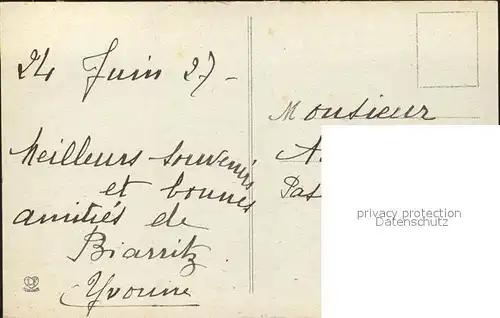 24 Juin 27 -
Meilleurs souvenirs
et bonnes
amitiés de
Biarritz
Yvonne
Monsieur
A.
Pas
privacy protection
Datenschutz